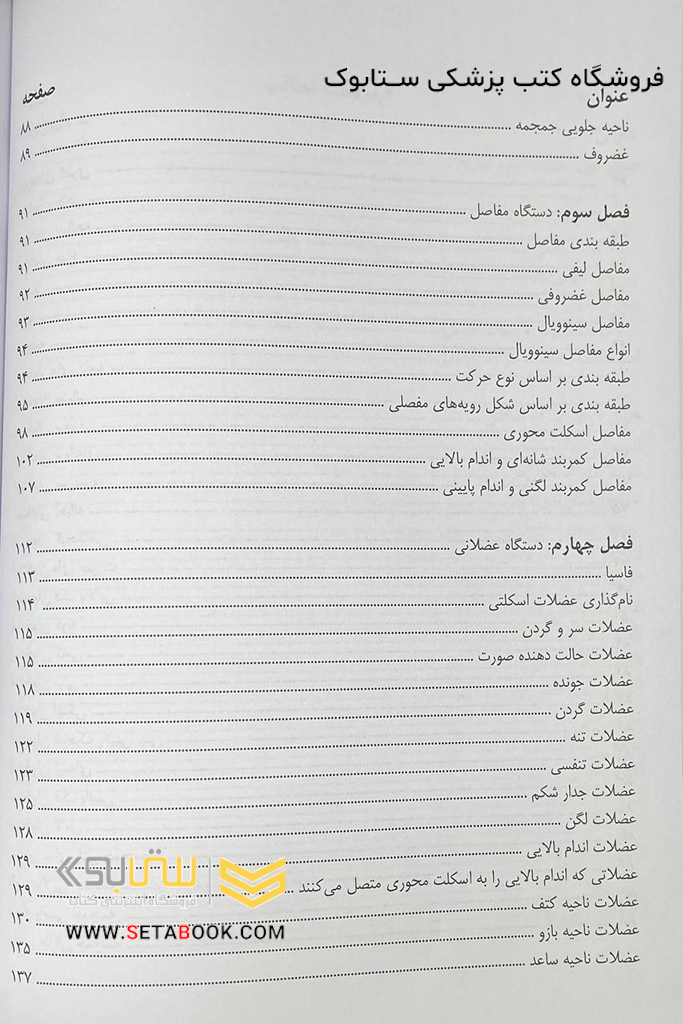 فروشگاه کتب پزشکی ستابوک
عنوان صفحه
ناحیه جلویی جمجمه ۸۸
غضروف ۸۹
فصل سوم: دستگاه مفاصل ۹۱
طبقه بندی مفاصل ۹۱
مفاصل لیفی ۹۱
مفاصل غضروفی ۹۲
مفاصل سینوویال ۹۳
انواع مفاصل سینوویال ۹۴
طبقه بندی بر اساس نوع حرکت ۹۴
طبقه بندی بر اساس شکل رویه‌های مفصلی ۹۵
مفاصل اسکلت محوری ۹۸
مفاصل کمربند شانه‌ای و اندام بالایی ۱۰۲
مفاصل کمربند لگنی و اندام پایینی ۱۰۷
فصل چهارم: دستگاه عضلانی ۱۱۲
فاسیا ۱۱۳
نام‌گذاری عضلات اسکلتی ۱۱۴
عضلات سر و گردن ۱۱۵
عضلات حالت دهنده صورت ۱۱۵
عضلات جونده ۱۱۸
عضلات گردن ۱۱۹
عضلات تنه ۱۲۲
عضلات تنفسی ۱۲۳
عضلات جدار شکم ۱۲۵
عضلات لگن ۱۲۸
عضلات اندام بالایی ۱۲۹
عضلاتی که اندام بالایی را به اسکلت محوری متصل می‌کنند ۱۲۹
عضلات ناحیه کتف ۱۳۰
عضلات ناحیه بازو ۱۳۵
عضلات ناحیه ساعد ۱۳۷
ستابوک
فروشگاه اینترنتی کتاب
WWW.SETABOOK.COM